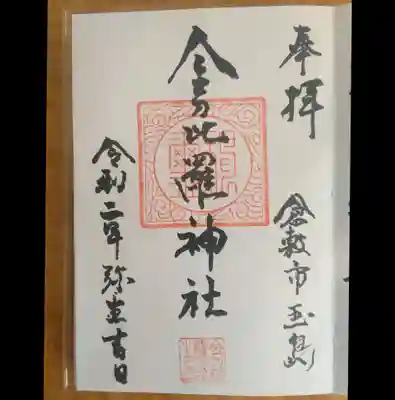 奉拝
倉敷市玉島
金毘羅神社
令和二年弥生吉日